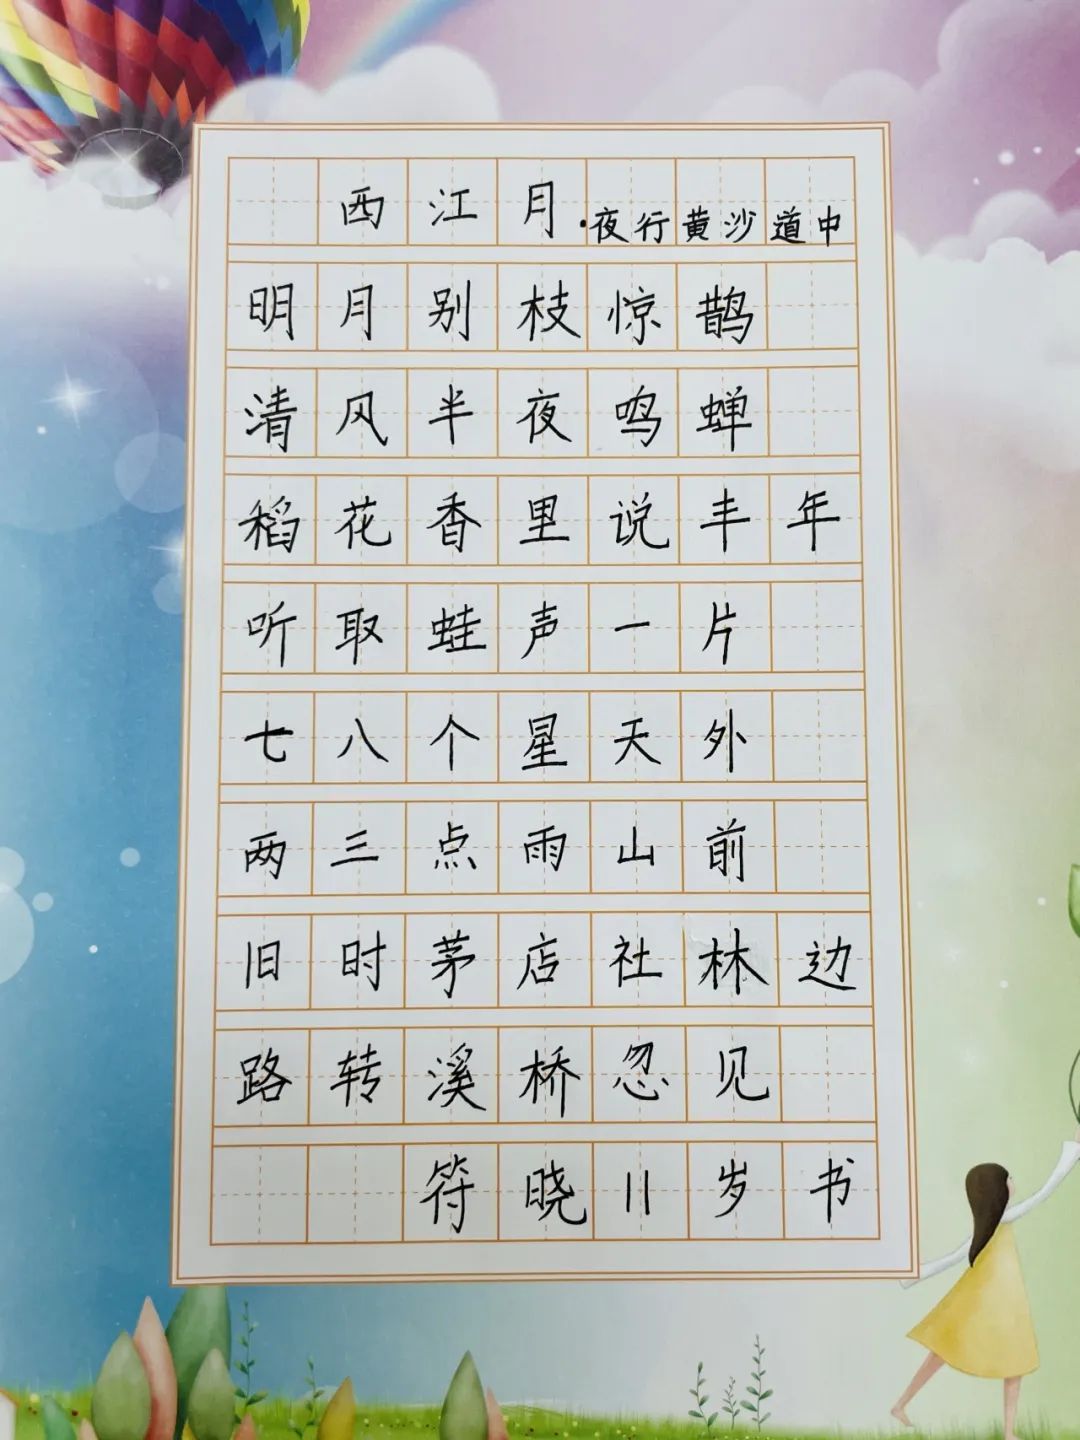 西江月·夜行黄沙道中
明月别枝惊鹊
清风半夜鸣蝉
稻花香里说丰年
听取蛙声一片
七八个星天外
两三点雨山前
旧时茅店社林边
路转溪桥忽见
符晓11岁书